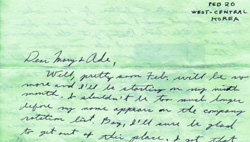 FEB 20
WEST-CENTRAL
KOREA
Dear Mary & Ade,
Well, pretty soon Feb. will be no
more and I'll be starting on my ninth
month. I shouldn't be too much longer
before my name appears on the company
rotation list. Boy, I'll sure be glad
to get out of this place. I got that